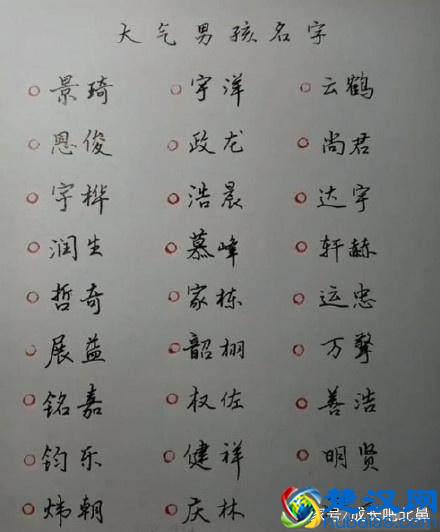 大气男孩名字
景琦 宇洋 云鹤
恩俊 政龙 尚君
宇桦 浩晨 达宇
润生 慕峰 轩赫
哲奇 家栋 运忠
展益 韶栩 万擎
铭嘉 权佐 善浩
钧乐 健祥 明贤
炜朝 庆林
楚汉网